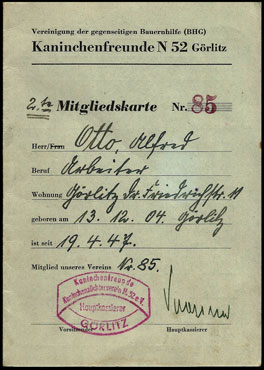 Vereinigung der gegenseitigen Bauernhilfe (BHG)
Kaninchenfreunde N 52 Görlitz
2.te Mitgliedskarte Nr. 85
Herr/Frau Otto, Alfred
Beruf Arbeiter
Wohnung Görlitz, Dr. Friedrichstr. 11
geboren am 13. 12. 04. Görlitz
ist seit 19. 4. 47.
Mitglied unseres Vereins Nr. 85.
Kaninchenfreunde
Kaninchenzüchterverein N. 52 e.V.
Hauptkassierer
GÖRLITZ
Vorsitzender Hauptkassierer